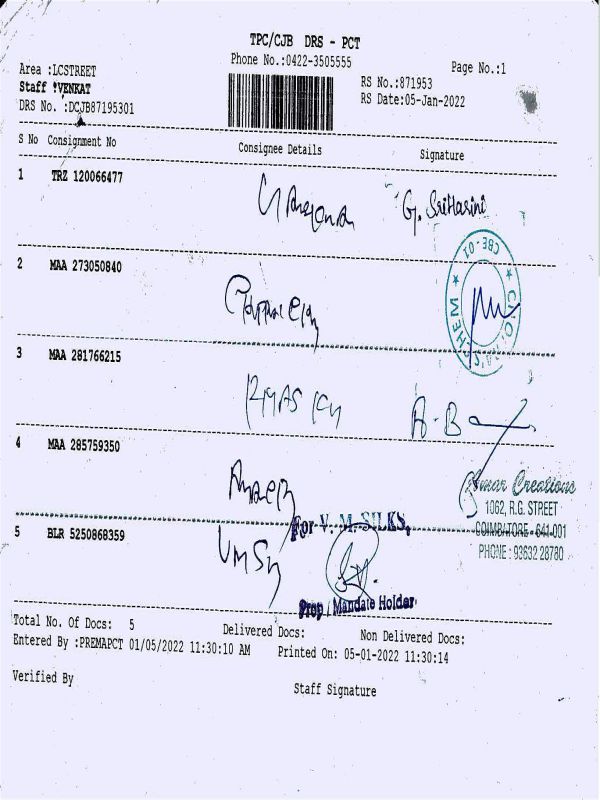 TPC/CJB DRS - PCT
Phone No.:0422-3505555
Page No.:1
Area :LCSTREET
RS No.:871953
Staff :VENKAT
RS Date:05-Jan-2022
DRS No. :DCJB87195301
S No Consignment No Consignee Details Signature
1 TRZ 120066477 G. SriHarini
CBE-01
2 MAA 273050840
3 MAA 281766215
A-B
4 MAA 285759350
Amar Creations
1062, R.G. STREET
For V. M. SILKS,
COIMBATORE - 641-001
5 BLR 5250868359
PHONE : 93632 28780
Prop / Mandate Holder
Total No. Of Docs: 5 Delivered Docs: Non Delivered Docs:
Entered By :PREMAPCT 01/05/2022 11:30:10 AM Printed On: 05-01-2022 11:30:14
Verified By
Staff Signature